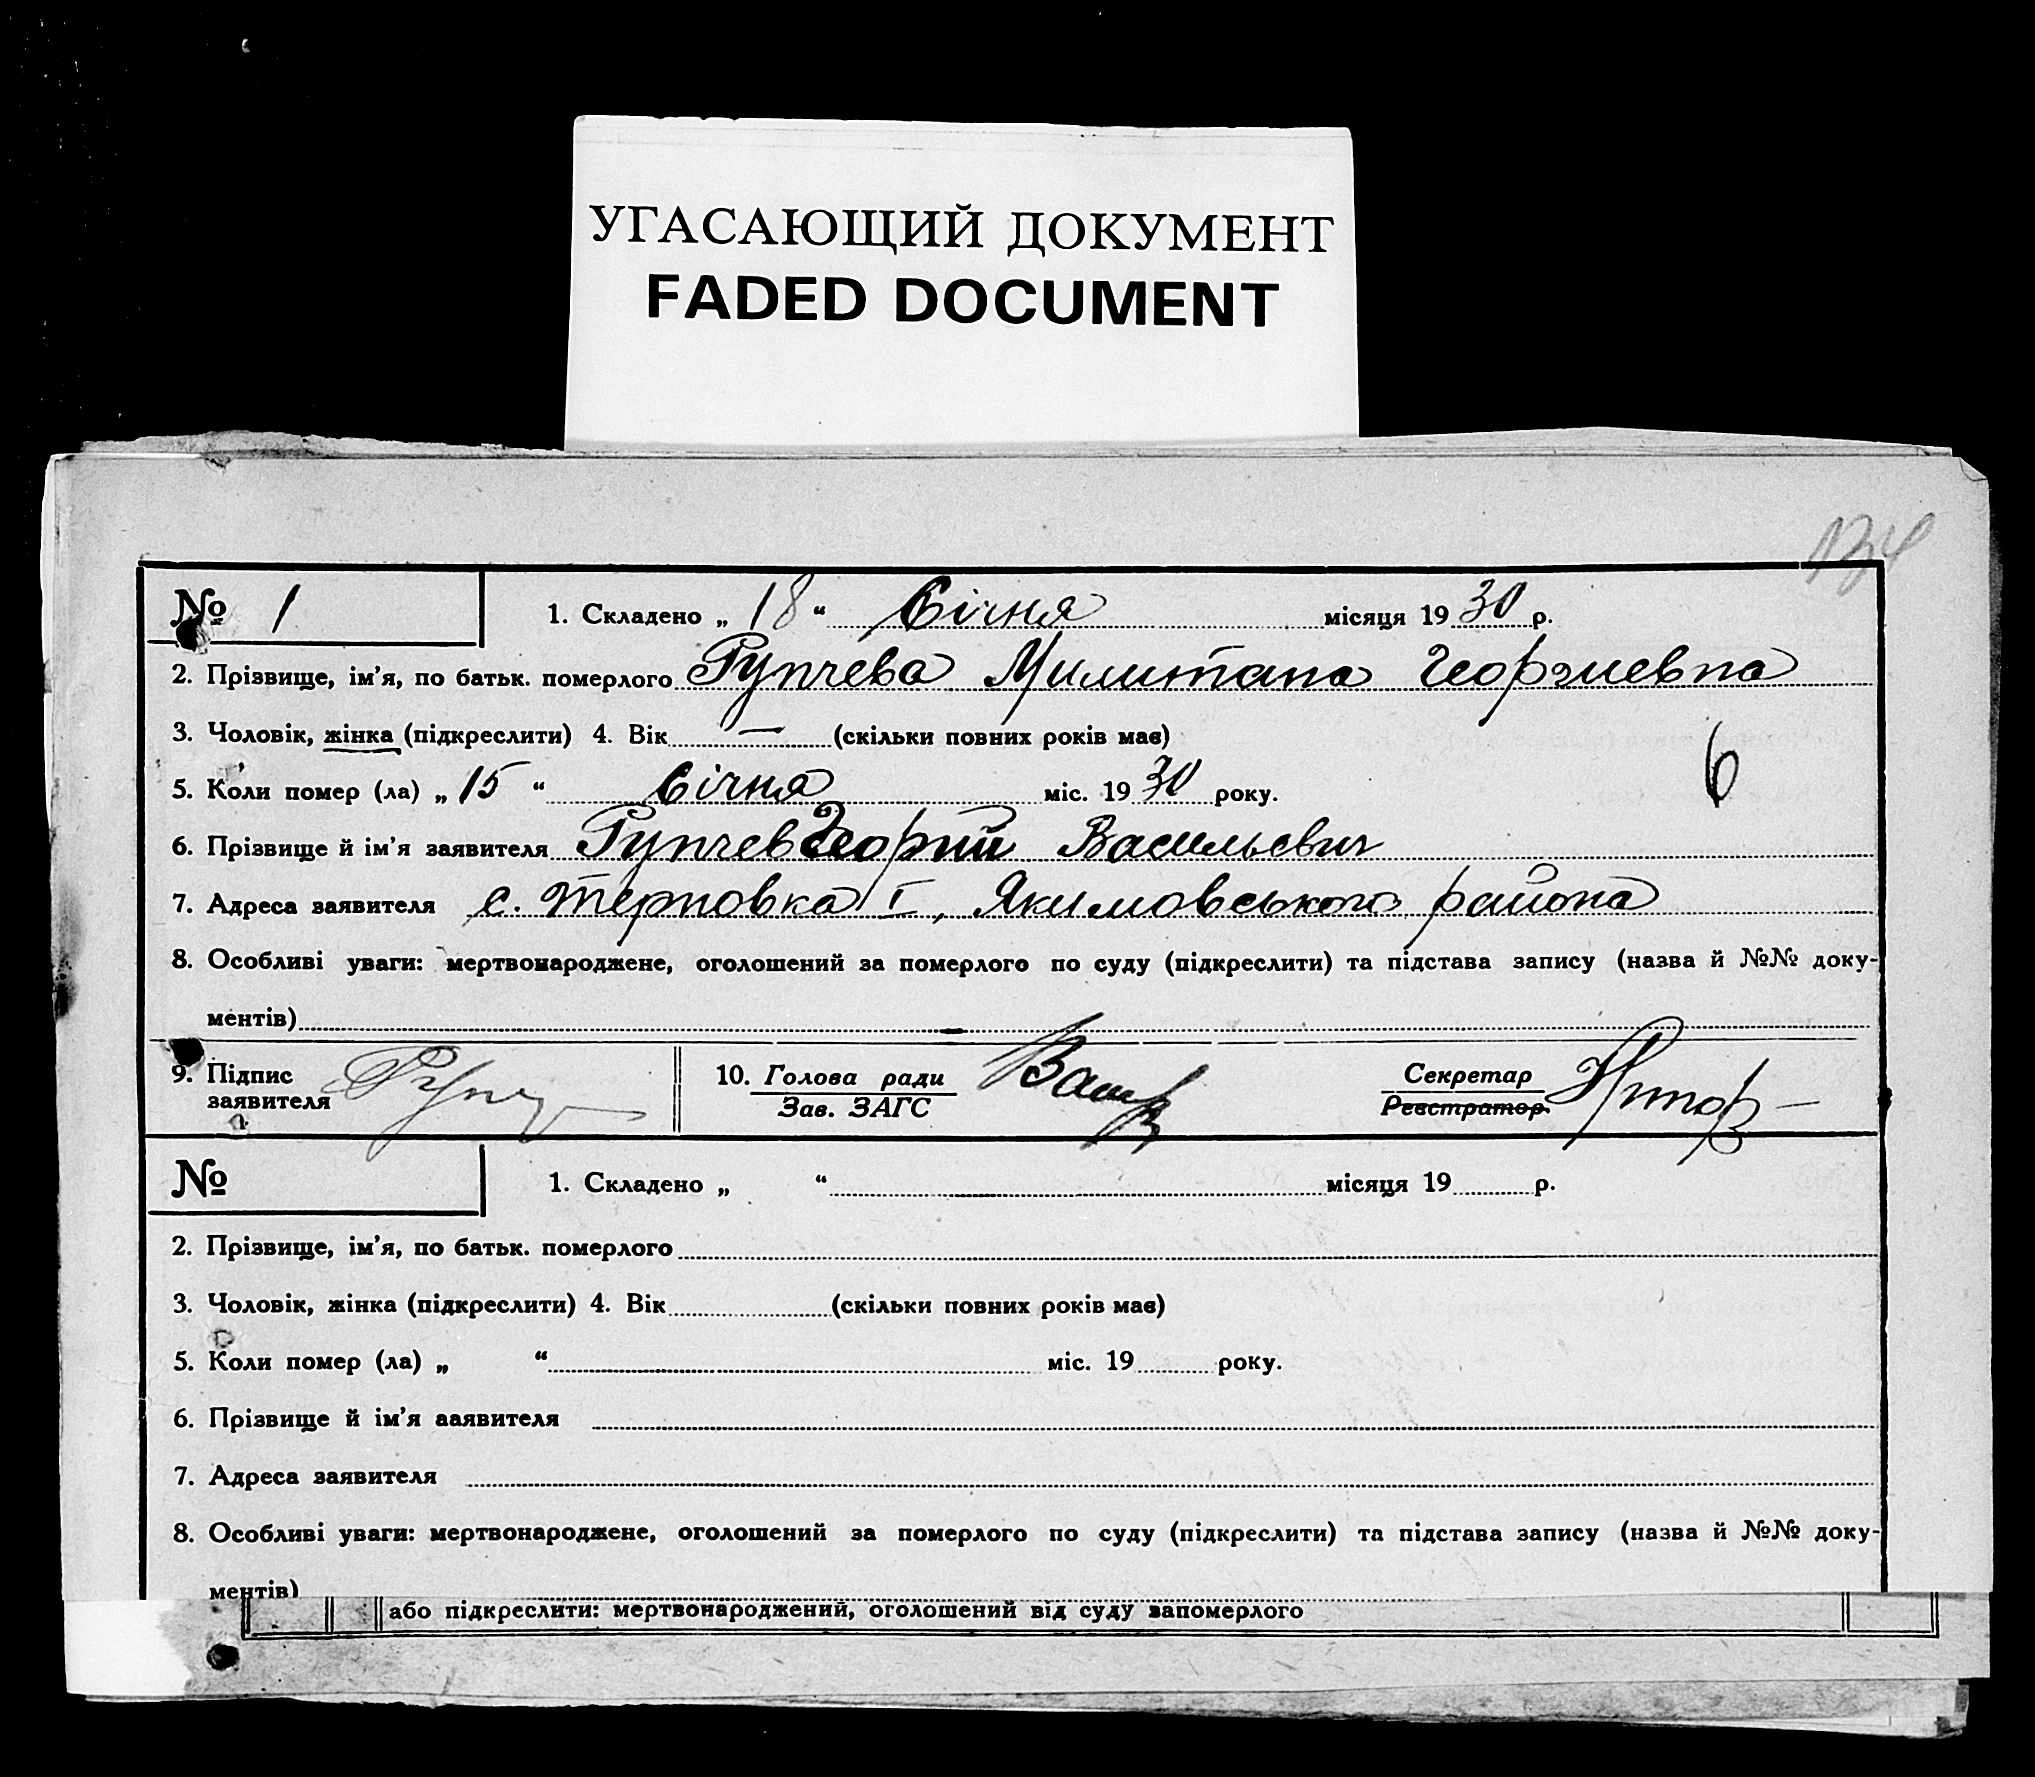 УГАСАЮЩИЙ ДОКУМЕНТ
FADED DOCUMENT
134
№ 1
1. Складено „ 18 “ Січня місяця 19 30 р.
2. Прізвище, ім'я, по батьк. померлого Рупчева Милитана Георгиевна
3. Чоловік, жінка (підкреслити) 4. Вік — (скільки повних років має)
6
5. Коли помер (ла) „ 15 “ Січня міс. 19 30 року.
6. Прізвище й ім'я заявителя Рупчев Георгий Васильевич
7. Адреса заявителя с. Терновка I, Якимовського района
8. Особливі уваги: мертвонароджене, оголошений за померлого по суду (підкреслити) та підстава запису (назва й №№ доку-
ментів) –
9. Підпис заявителя
10. Голова ради
Зав. ЗАГС
Секретар
Реєстратор
№
1. Складено „ “ місяця 19 р.
2. Прізвище, ім'я, по батьк. померлого
3. Чоловік, жінка (підкреслити) 4. Вік (скільки повних років має)
5. Коли помер (ла) „ “ міс. 19 року.
6. Прізвище й ім'я ааявителя
7. Адреса заявителя
8. Особливі уваги: мертвонароджене, оголошений за померлого по суду (підкреслити) та підстава запису (назва й №№ доку-
ментів)
або підкреслити: мертвонароджений, оголошений від суду запомерлого